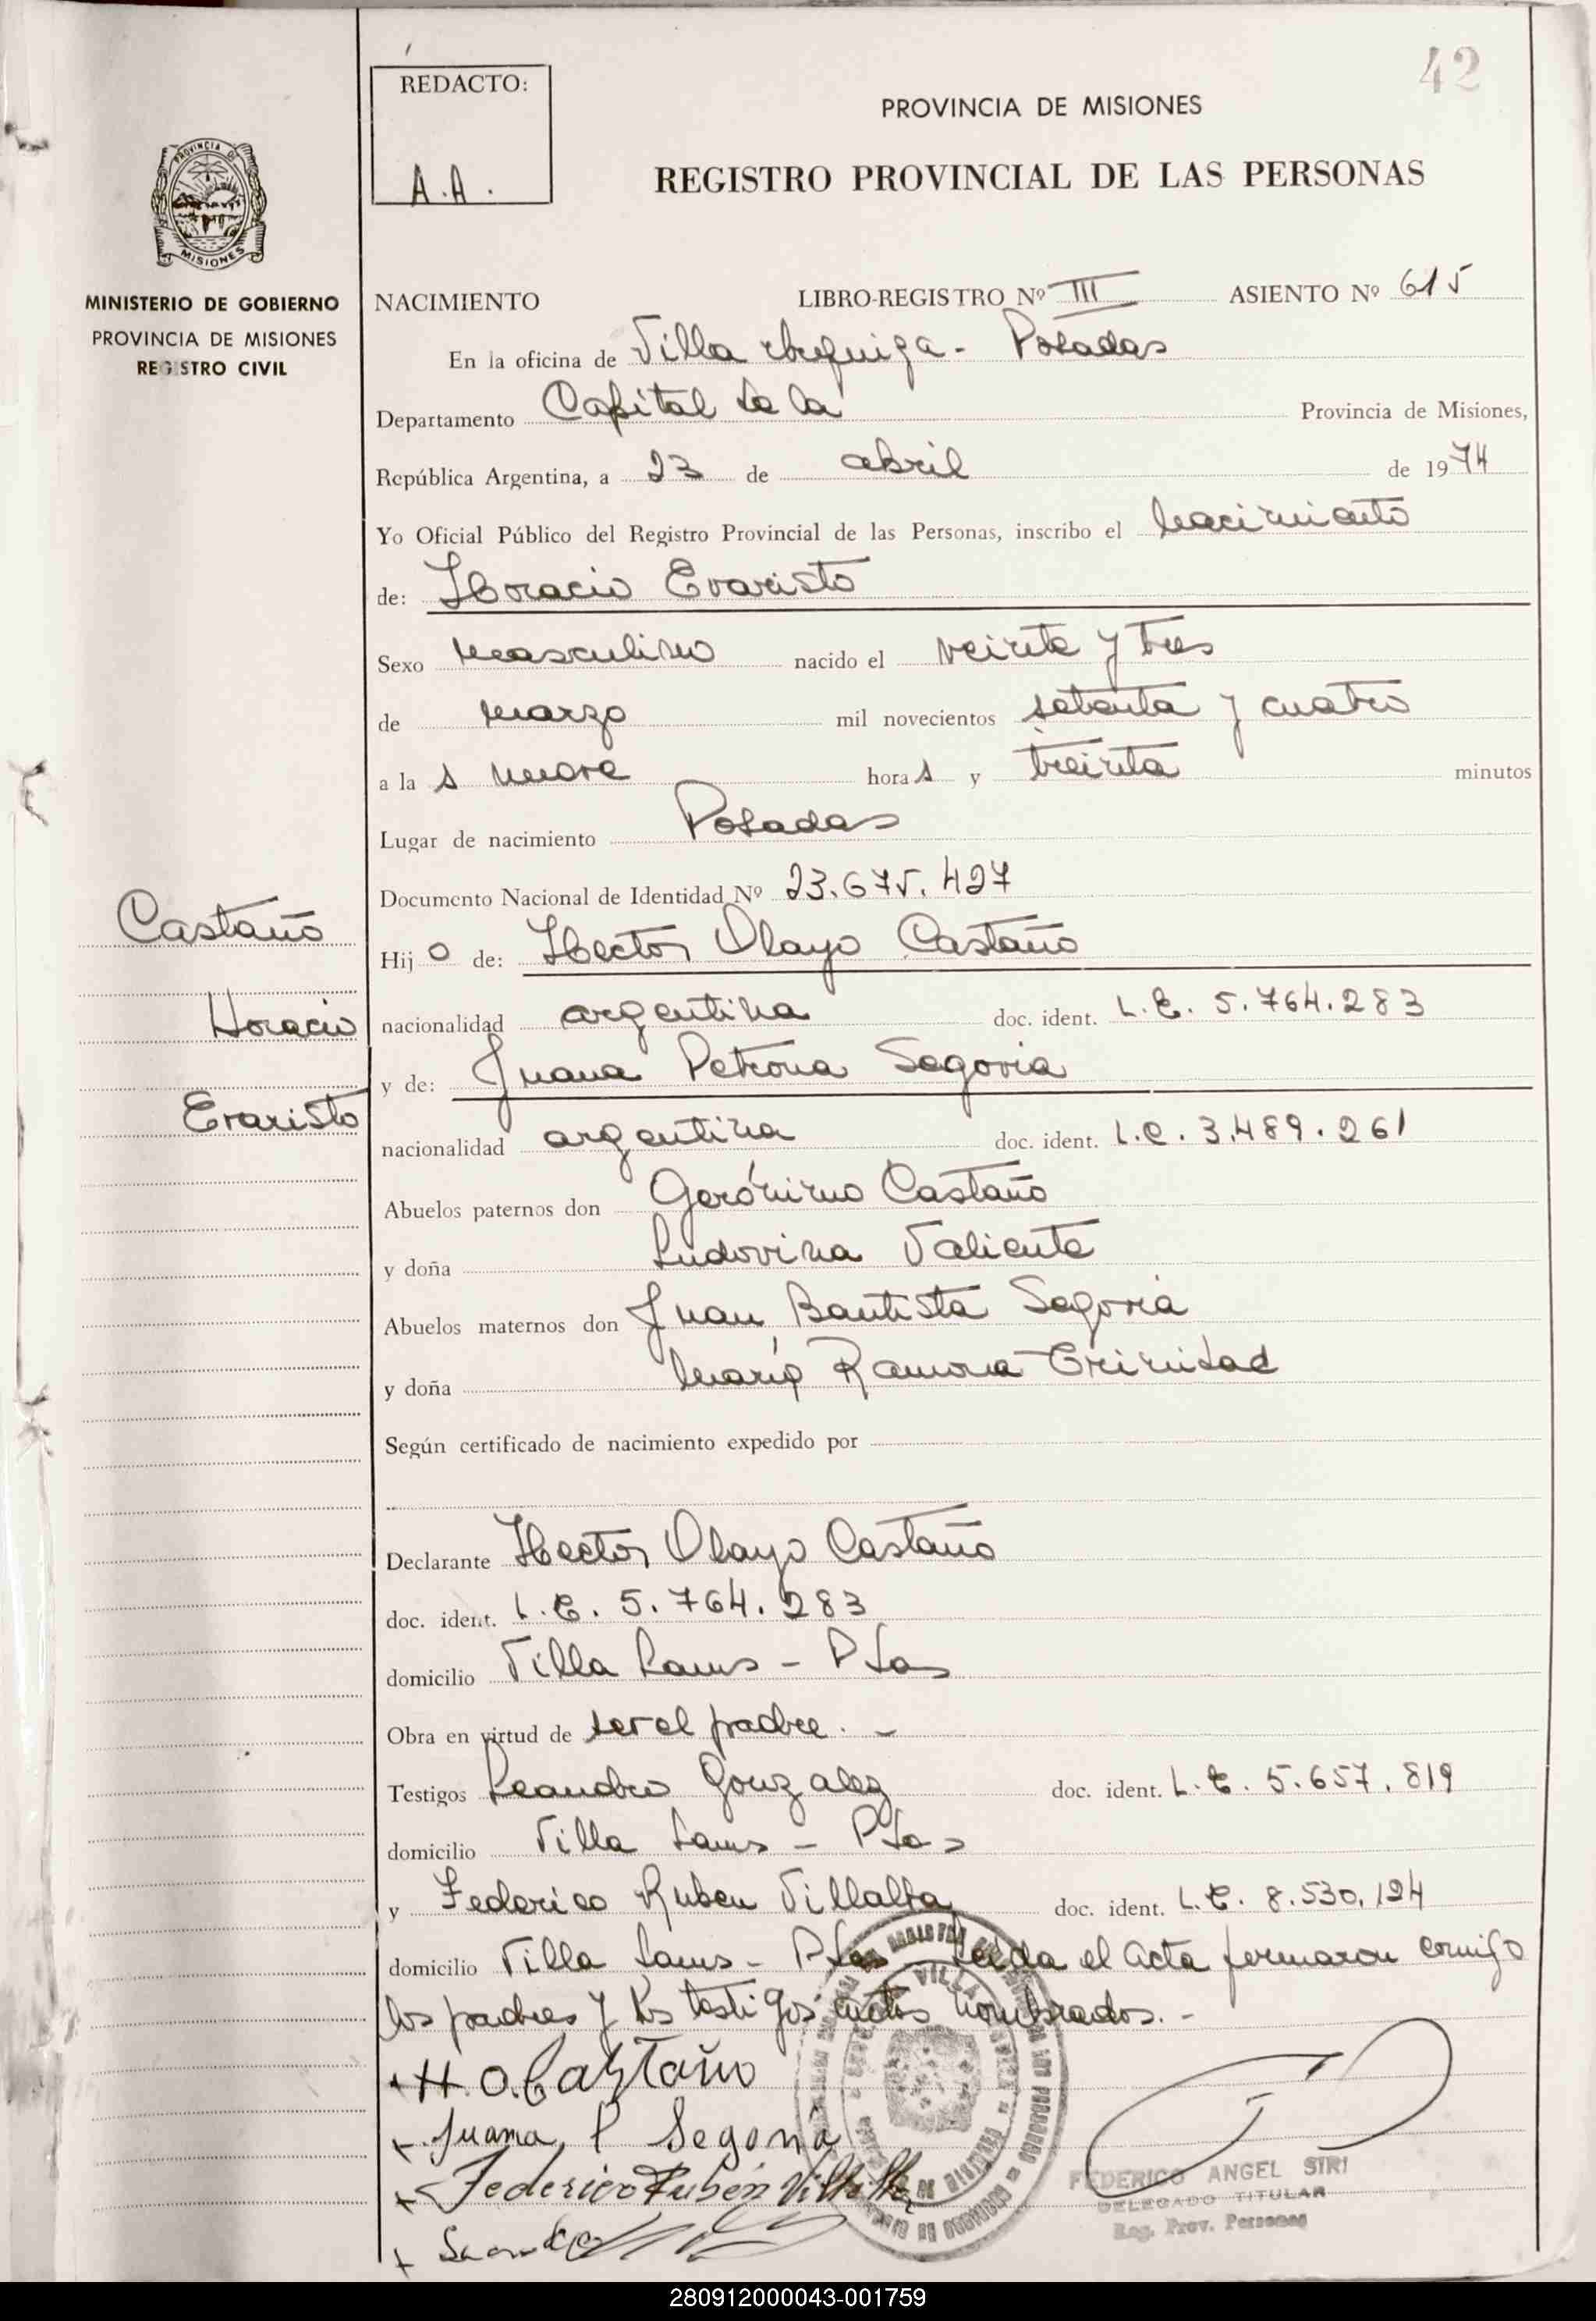 42
REDACTO:
A.A.
PROVINCIA DE MISIONES
REGISTRO PROVINCIAL DE LAS PERSONAS
PROVINCIA DE
MISIONES
MINISTERIO DE GOBIERNO
PROVINCIA DE MISIONES
REGISTRO CIVIL
NACIMIENTO LIBRO-REGISTRO Nº III ASIENTO Nº 615
En la oficina de Villa Urquiza - Posadas
Departamento Capital de la Provincia de Misiones,
República Argentina, a 23 de abril de 1974
Yo Oficial Público del Registro Provincial de las Personas, inscribo el nacimiento
de: Horacio Evaristo
Sexo masculino nacido el veinte y tres
de marzo mil novecientos setenta y cuatro
a la s nueve hora s y treinta minutos
Lugar de nacimiento Posadas
Documento Nacional de Identidad Nº 23.675.427
Castaño
Hij o de: Hector Olayo Castaño
Horacio
nacionalidad argentina doc. ident. L.E. 5.764.283
y de: Juana Petrona Segovia
Evaristo
nacionalidad argentina doc. ident. L.C. 3.489.261
Abuelos paternos don Gerónimo Castaño
y doña Ludovina Valiente
Abuelos maternos don Juan Bautista Segovia
y doña María Ramona Trinidad
Según certificado de nacimiento expedido por
Declarante Hector Olayo Castaño
doc. ident. L.E. 5.764.283
domicilio Villa Lanus - Pdas
Obra en virtud de ser el padre. -
Testigos Leandro Gonzalez doc. ident. L.E. 5.657.819
domicilio Villa Lanus - Pdas
y Federico Ruben Villalba doc. ident. L.E. 8.530.124
domicilio Villa Lanus - Pdas Leida el Acta firmaron conmigo
los padres y los testigos antes nombrados. -
H.O. Castaño
Juana P Segovia
Federico Rubén Villalba
FEDERICO ANGEL SIRI
DELEGADO TITULAR
Reg. Prov. Personas
280912000043-001759